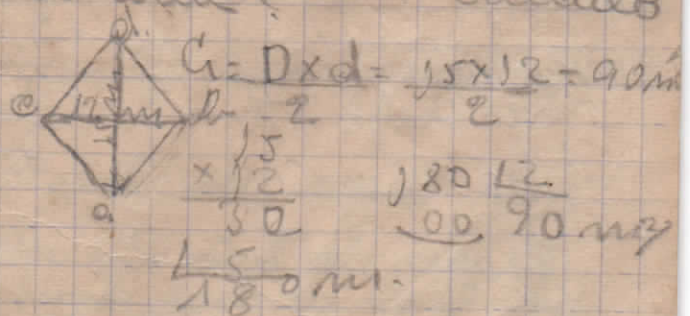 G = D x d / 2 = 15 x 12 / 2 = 90 m
12 m
15
x 12
30
15
180 m.
180 | 2
00 90 m2